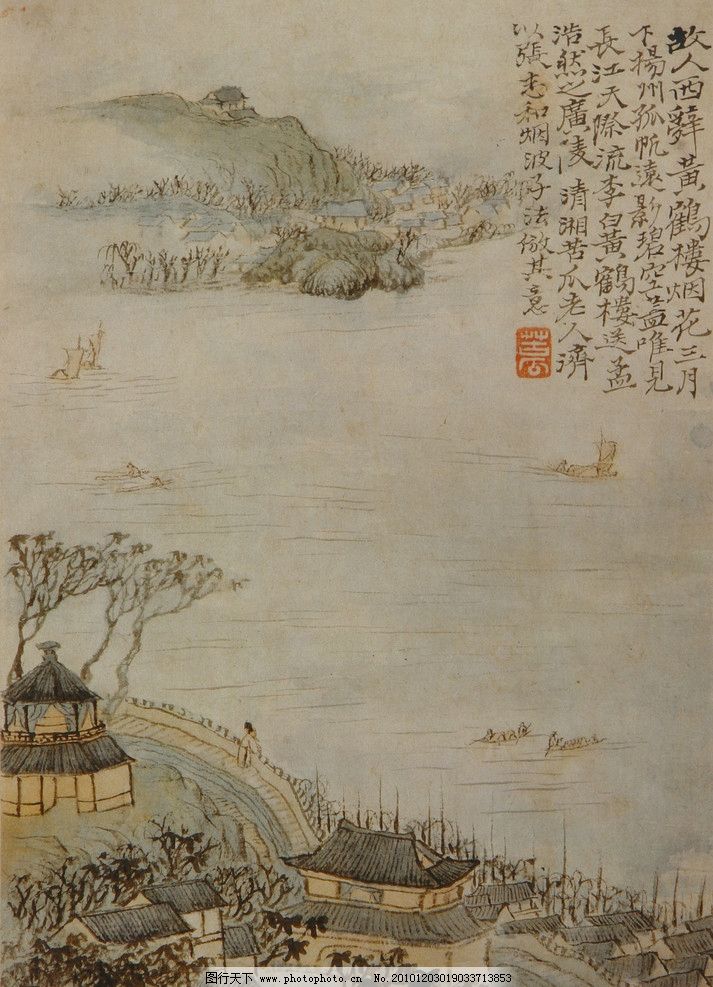 故人西辭黄鶴樓烟花三月
下揚州孤帆遠影碧空盡唯見
長江天際流李白黄鶴樓送孟
浩然之廣凌 清湘苦瓜老人濟
以張志和烟波子法倣其意
苦瓜
图行天下 www.photophoto.cn No.20101203019033713853